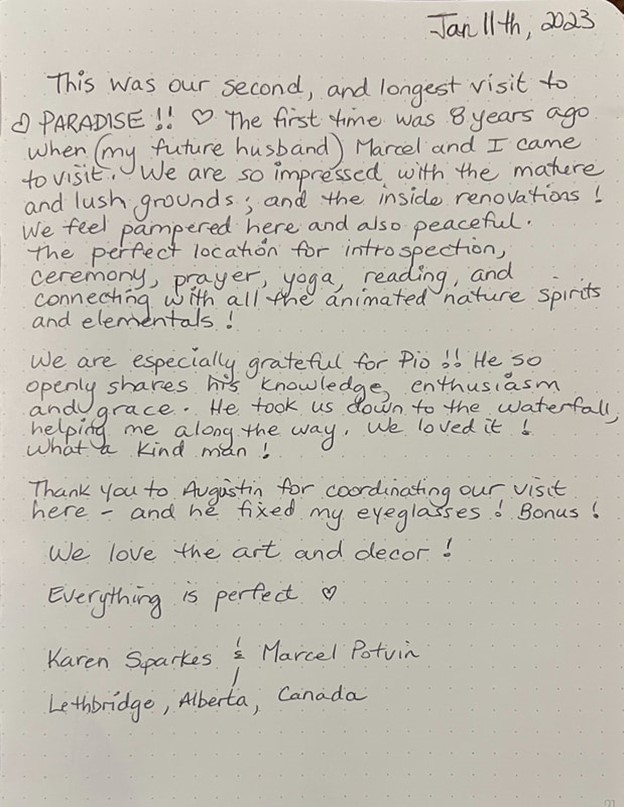 Jan 11th, 2023
This was our second, and longest visit to
PARADISE !! ♡ The first time was 8 years ago
when (my future husband) Marcel and I came
to visit. We are so impressed with the mature
and lush grounds; and the inside renovations !
We feel pampered here and also peaceful.
The perfect location for introspection,
ceremony, prayer, yoga, reading, and
connecting with all the animated nature spirits
and elementals !
We are especially grateful for Pio !! He so
openly shares his knowledge, enthusiasm
and grace. He took us down to the waterfall,
helping me along the way. We loved it !
What a kind man !
Thank you to Augustin for coordinating our visit
here - and he fixed my eyeglasses ! Bonus !
We love the art and decor !
Everything is perfect ♡
Karen Sparkes & Marcel Potvin
Lethbridge, Alberta, Canada